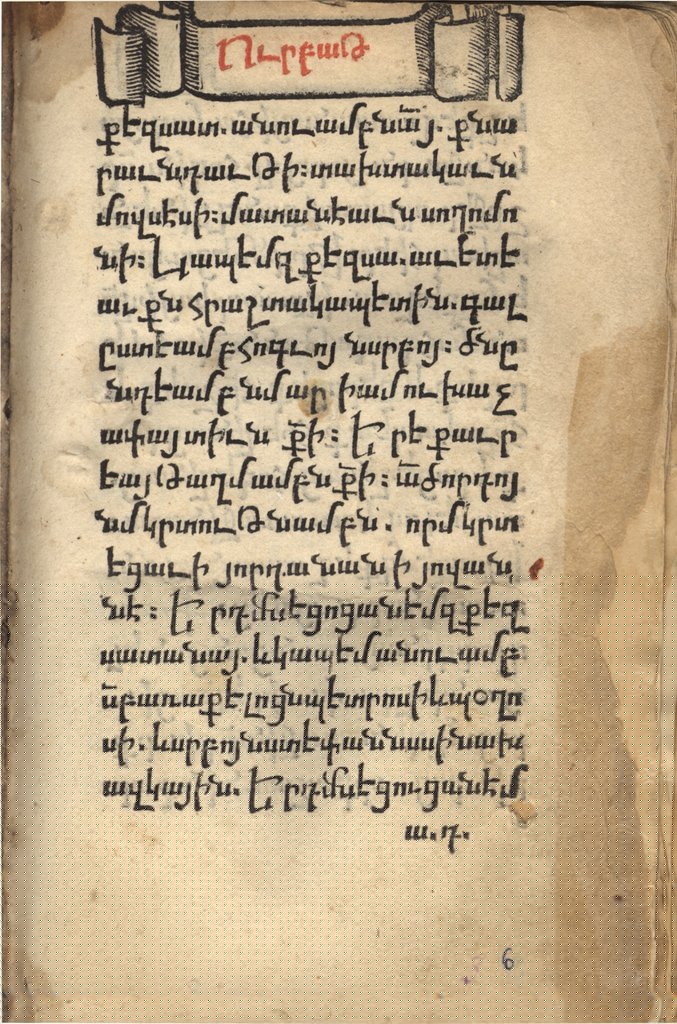 Ուրբաթ
քեզ սատ. անուամբն ա՟յ. քնա
րաւն դաւթի: տախտակաւն
մովսեսի: մատանեաւն սողոմո
նի: Կապեմ զքեզ սա. աւետե
աւ քն հրաշտակապետին. գալ
ըստեամբ հոգւոյ սրբոյ: ծնը
նդեամբն մարիամու խաչ
ափայտիւն ք՟ի: Երեքաւր
եայ թաղմամբն ք՟ի: ա՟ծորդոյ
ն մկրտութնամբն. որ մկրտ
եցաւ ի յորդանան ի յովան
նէ: Երդմնեցոցանեմ զքեզ
սատանայ. և կապեմ անուամբ
ս՟բ առաքելոցն պետրոսի և պօղո
սի. և սրբոյն ստեփաննոսի նախ
ավկային. Երդմնեցուցանեմ
ա.դ.
6